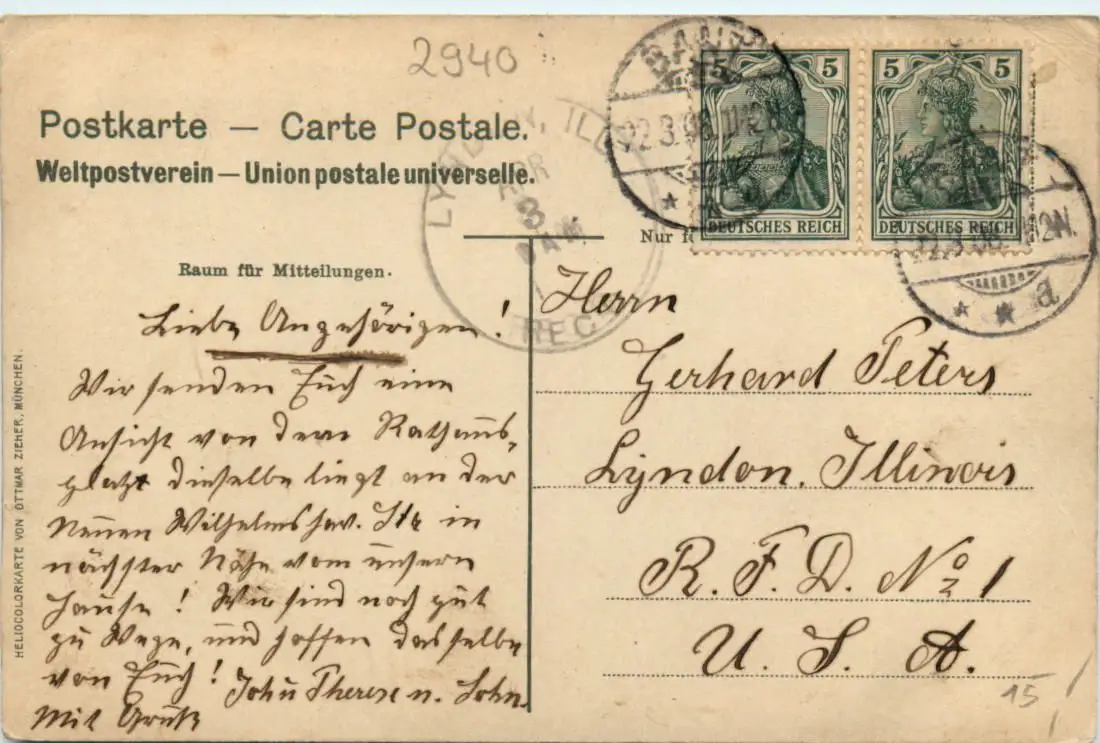 2940
Postkarte — Carte Postale.
Weltpostverein — Union postale universelle.
5 5
5 5
DEUTSCHES REICH
DEUTSCHES REICH
BANT
22.3.08. 11-12N.
LYNDON, ILL.
APR
3
AM
REC'D
Nur
Raum für Mitteilungen.
Liebe Angehörigen!
Wir senden Euch eine
Ansicht von dem Rathaus-
platz dieselbe liegt an der
Neuen Wilhelmshav. Str in
nächster Nähe vom unsern
Hause! Wir sind noch gut
zu Wege, und hoffen dasselbe
von Euch! John Therese u. Sohn.
Mit Gruß
Herrn
Gerhard Peters
Lyndon, Illinois
R. F. D. No 1
U. S. A.
15
HELIOCOLORKARTE VON OTTMAR ZIEHER, MÜNCHEN.